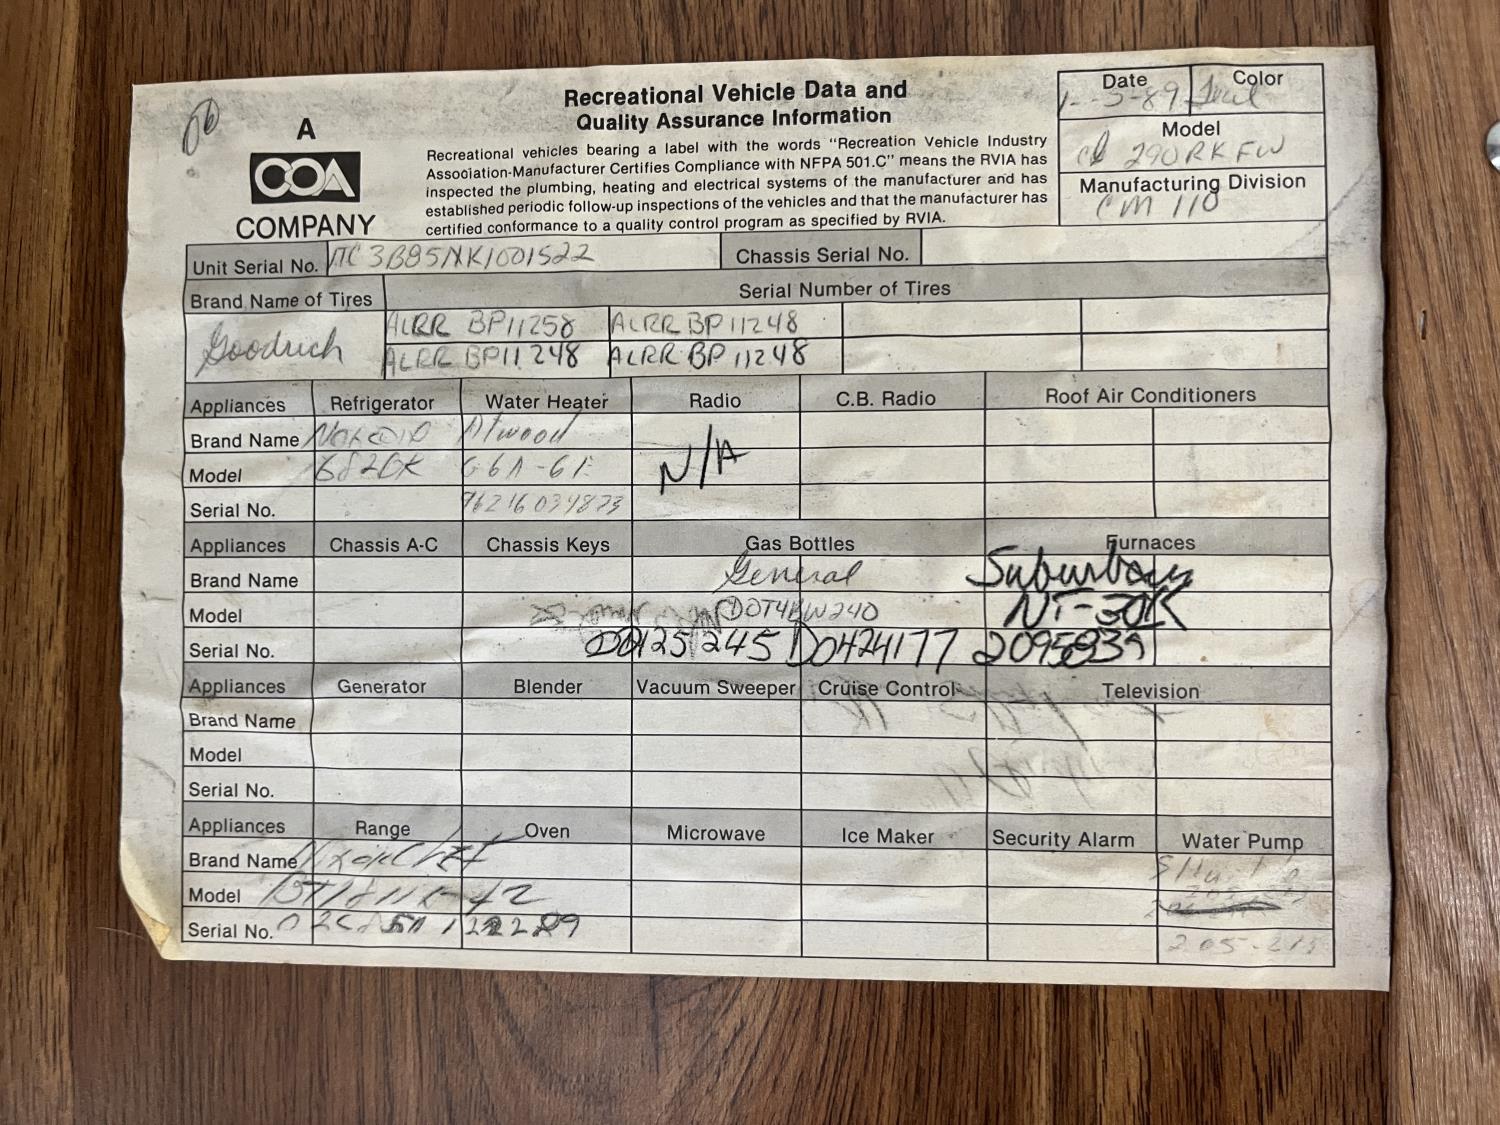 Recreational Vehicle Data and
Quality Assurance Information
Recreational vehicles bearing a label with the words "Recreation Vehicle Industry
Association-Manufacturer Certifies Compliance with NFPA 501.C" means the RVIA has
inspected the plumbing, heating and electrical systems of the manufacturer and has
established periodic follow-up inspections of the vehicles and that the manufacturer has
certified conformance to a quality control program as specified by RVIA.
A
COA
COMPANY
Date Color
Model
290RKFW
Manufacturing Division
CM 110
Unit Serial No. Chassis Serial No.
Brand Name of Tires Serial Number of Tires
Goodrich
ALRR BP11258 ALRR BP11248
ALRR BP11248 ALRR BP11248
Appliances Refrigerator Water Heater Radio C.B. Radio Roof Air Conditioners
Brand Name Atwood
N/A
Model
Serial No.
Appliances Chassis A-C Chassis Keys Gas Bottles Furnaces
Brand Name General Suburban
Model DOT4BW240 NT-30K
Serial No. D0424177
Appliances Generator Blender Vacuum Sweeper Cruise Control Television
Brand Name
Model
Serial No.
Appliances Range Oven Microwave Ice Maker Security Alarm Water Pump
Brand Name
Model
Serial No.